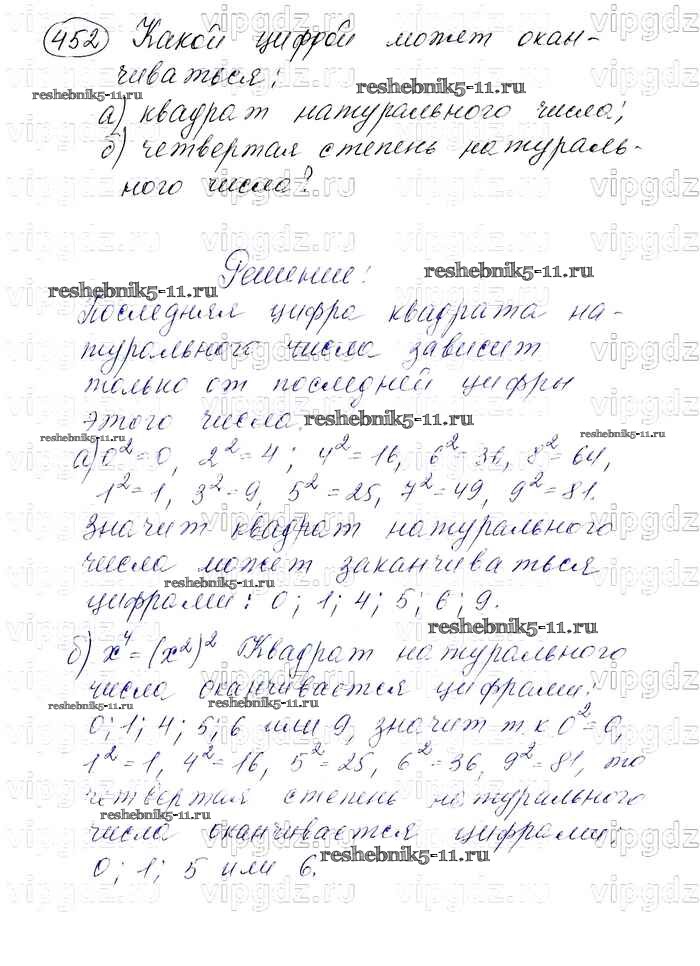 452 Какой цифрой может окан-
чиваться:
а) квадрат натурального числа;
б) четвертая степень натураль-
ного числа?
Решение:
Последняя цифра квадрата на-
турального числа зависит
только от последней цифры
этого числа.
а) 0² = 0, 2² = 4; 4² = 16, 6² = 36, 8² = 64,
1² = 1, 3² = 9, 5² = 25, 7² = 49, 9² = 81.
Значит квадрат натурального
числа может заканчиваться
цифрами: 0; 1; 4; 5; 6; 9.
б) x⁴ = (x²)² Квадрат натурального
числа оканчивается цифрами:
0; 1; 4; 5; 6 или 9, значит т.к 0² = 0,
1² = 1, 4² = 16, 5² = 25, 6² = 36, 9² = 81, то
четвертая степень натурального
числа оканчивается цифрами:
0; 1; 5 или 6.
reshebnik5-11.ru
vipgdz.ru